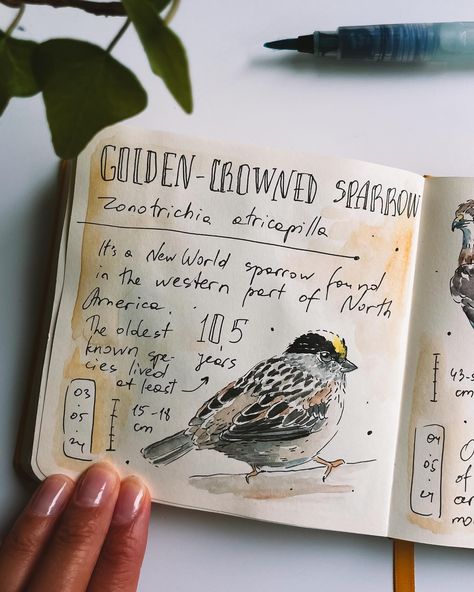 GOLDEN-CROWNED SPARROW
Zonotrichia atricapilla
It's a New World sparrow found
in the western part of North
America.
The oldest
known spe-
cies lived
at least
10,5
years
03
05
24
15-18
cm
43-5
cm
04
05
24
of